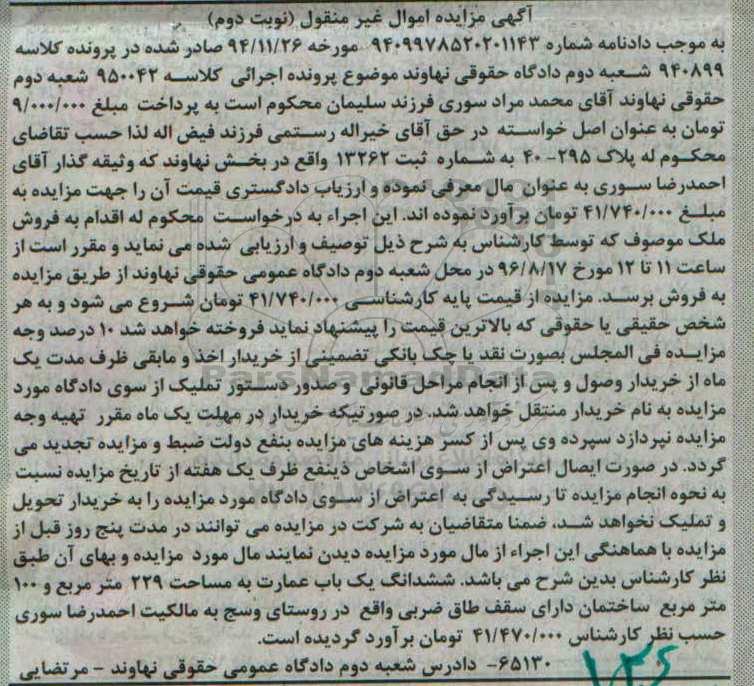 آگهی مزایده اموال غیر منقول (نوبت دوم)
به موجب دادنامه شماره ۹۴۰۹۹۷۸۵۲۰۲۰۱۱۴۳ مورخه ۹۴/۱۱/۲۶ صادر شده در پرونده کلاسه
۹۴۰۸۹۹ شعبه دوم دادگاه حقوقی نهاوند موضوع پرونده اجرائی کلاسه ۹۵۰۰۴۲ شعبه دوم
حقوقی نهاوند آقای محمد مراد سوری فرزند سلیمان محکوم است به پرداخت مبلغ ۹/۰۰۰/۰۰۰
تومان به عنوان اصل خواسته در حق آقای خیراله رستمی فرزند فیض اله لذا حسب تقاضای
محکوم له پلاک ۲۹۵-۴۰ به شماره ثبت ۱۳۲۶۲ واقع در بخش نهاوند که وثیقه گذار آقای
احمدرضا سوری به عنوان مال معرفی نموده و ارزیاب دادگستری قیمت آن را جهت مزایده به
مبلغ ۴۱/۷۴۰/۰۰۰ تومان برآورد نموده اند. این اجراء به درخواست محکوم له اقدام به فروش
ملک موصوف که توسط کارشناس به شرح ذیل توصیف و ارزیابی شده می نماید و مقرر است از
ساعت ۱۱ تا ۱۲ مورخ ۹۶/۸/۱۷ در محل شعبه دوم دادگاه عمومی حقوقی نهاوند از طریق مزایده
به فروش برسد. مزایده از قیمت پایه کارشناسی ۴۱/۷۴۰/۰۰۰ تومان شروع می شود و به هر
شخص حقیقی یا حقوقی که بالاترین قیمت را پیشنهاد نماید فروخته خواهد شد ۱۰ درصد وجه
مزایده فی المجلس بصورت نقد یا چک بانکی تضمینی از خریدار اخذ و مابقی ظرف مدت یک
ماه از خریدار وصول و پس از انجام مراحل قانونی و صدور دستور تملیک از سوی دادگاه مورد
مزایده به نام خریدار منتقل خواهد شد. در صورتیکه خریدار در مهلت یک ماه مقرر تهیه وجه
مزایده نپردازد سپرده وی پس از کسر هزینه های مزایده بنفع دولت ضبط و مزایده تجدید می
گردد. در صورت ایصال اعتراض از سوی اشخاص ذینفع ظرف یک هفته از تاریخ مزایده نسبت
به نحوه انجام مزایده تا رسیدگی به اعتراض از سوی دادگاه مورد مزایده را به خریدار تحویل
و تملیک نخواهد شد، ضمنا متقاضیان به شرکت در مزایده می توانند در مدت پنج روز قبل از
مزایده با هماهنگی این اجراء از مال مورد مزایده دیدن نمایند مال مورد مزایده و بهای آن طبق
نظر کارشناس بدین شرح می باشد. ششدانگ یک باب عمارت به مساحت ۲۲۹ متر مربع و ۱۰۰
متر مربع ساختمان دارای سقف طاق ضربی واقع در روستای وسج به مالکیت احمدرضا سوری
حسب نظر کارشناس ۴۱/۴۷۰/۰۰۰ تومان برآورد گردیده است.
۶۵۱۳۰- دادرس شعبه دوم دادگاه عمومی حقوقی نهاوند - مرتضایی
ParsNamadData